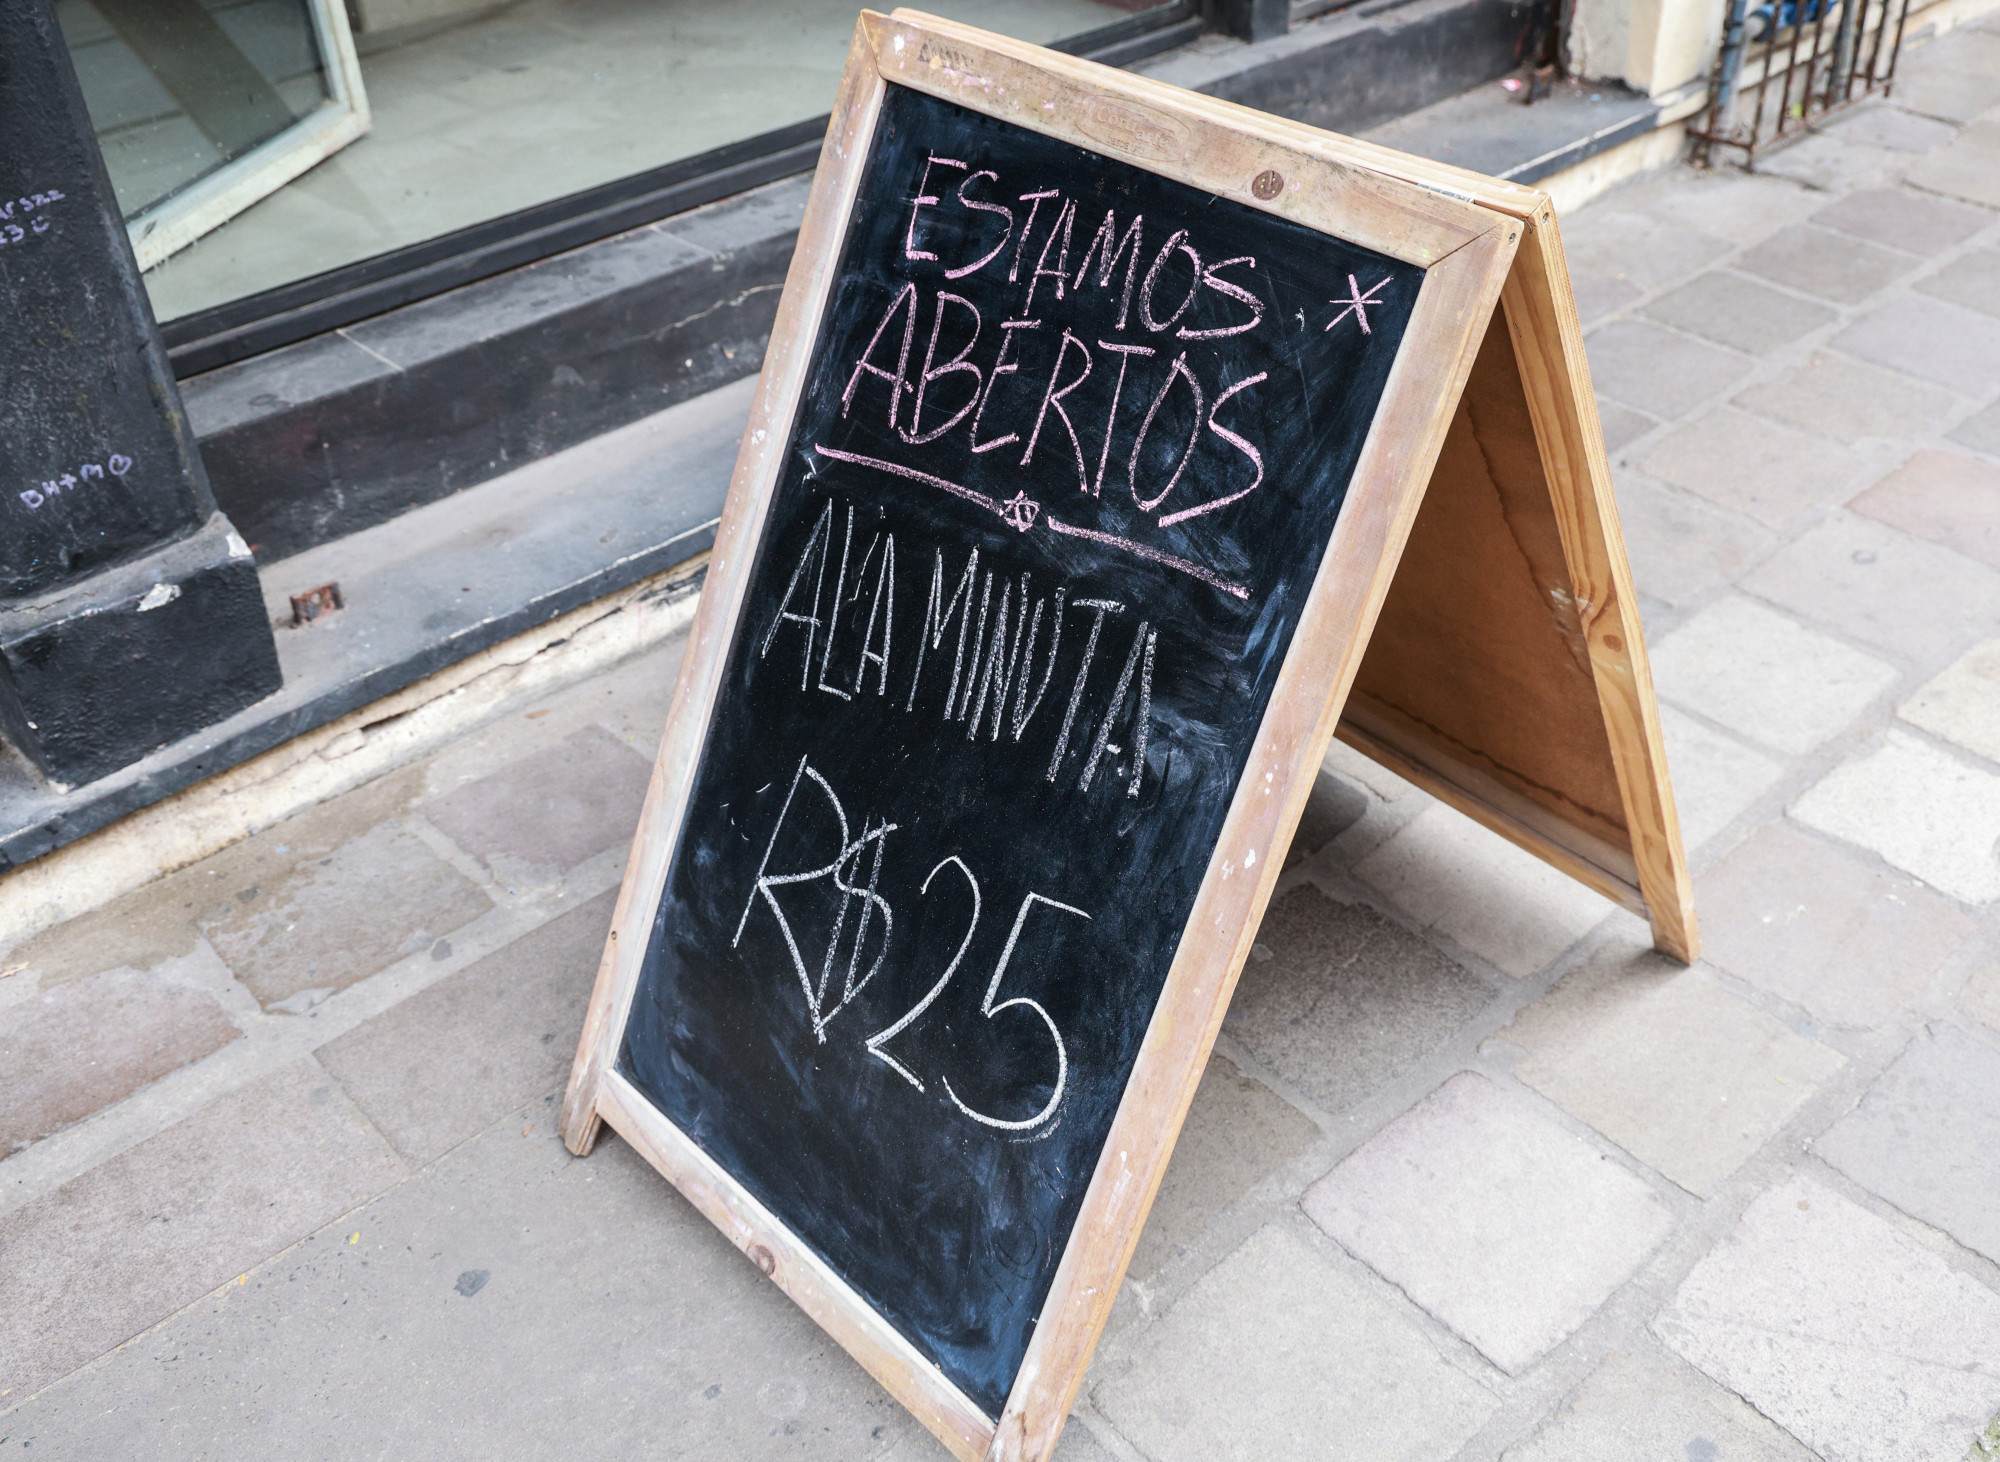 ESTAMOS
ABERTOS
ALA MINUTA
R$ 25
BH+M